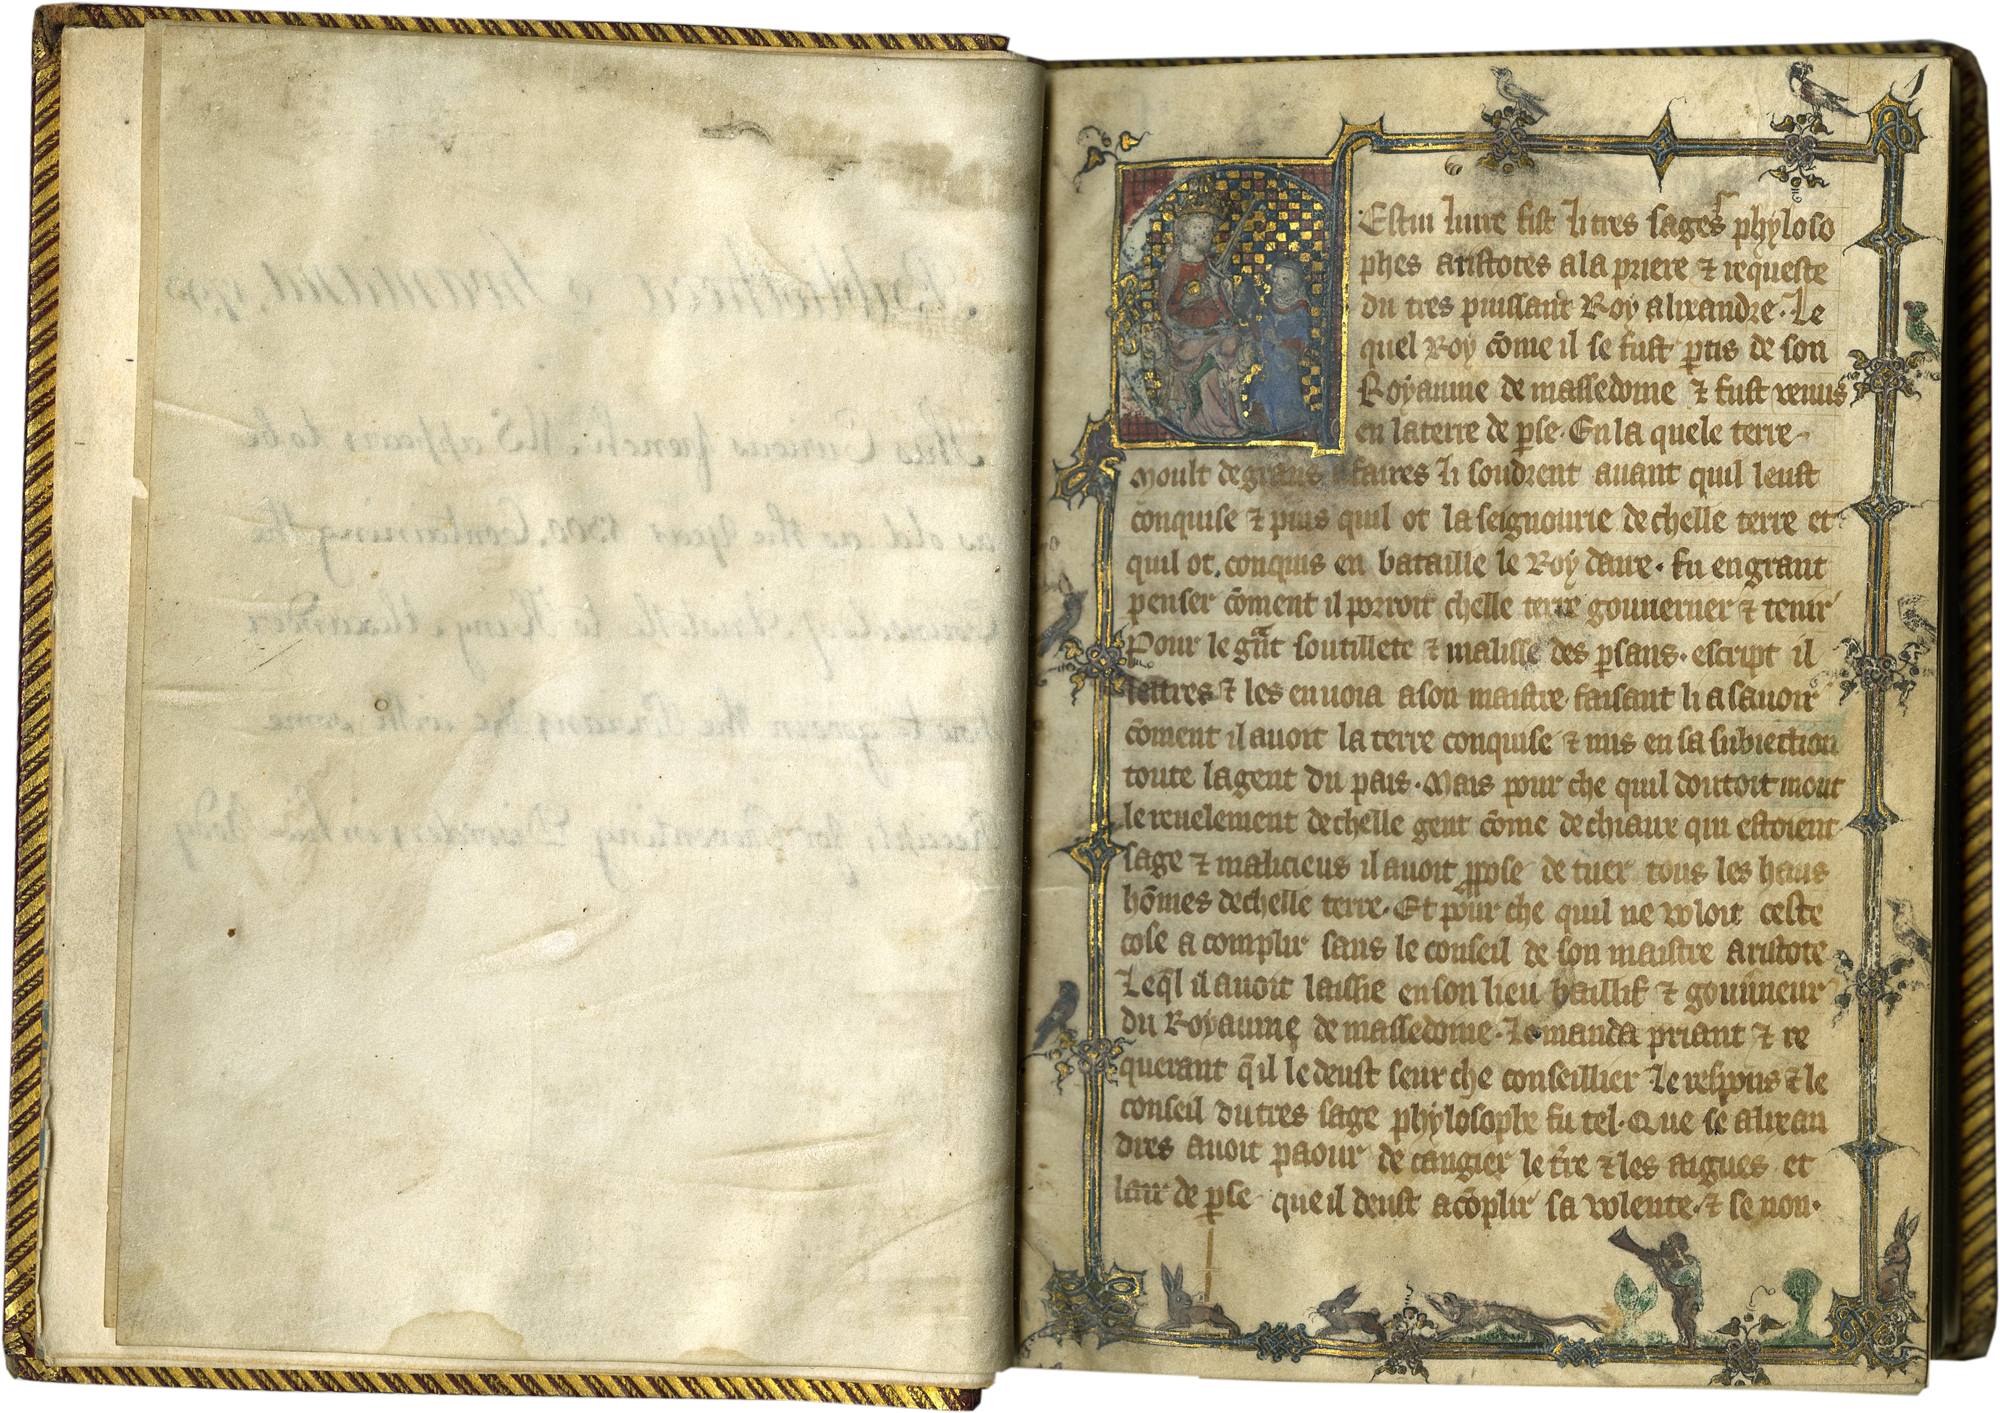 This Curious french MS appears to be
as old as the Year 1300. Containing the
Council of Aristotle to King Alexander
how to govern the Persians &c with some
Receipts for Preventing Disorders in his Body
Cestui liure fist li tres sages phyloso
phes aristotes a la priere ⁊ requeste
du tres puissant Roy alixandre. Le
quel Roy cõme il se fust ꝑtis de son
Royaume de massedoine ⁊ fust venus
en la terre de ꝑse. En la quele terre
moult de grans afaires li soudrent auant quil leust
conquise ⁊ puis quil ot la seignourie de chelle terre et
quil ot conquis en bataille le Roy daire. fu en grant
penser cõment il porroit chelle terre gouuerner ⁊ tenir
Pour le grãt soutillete ⁊ malisse des ꝑsans. escript il
lettres ⁊ les enuoia a son maistre faisant li a sauoir
cõment il auoit la terre conquise ⁊ mis en sa subiection
toute la gent du pais. Mais pour che quil doutoit mout
le reuelement de chelle gent cõme de chiaux qui estoient
sage ⁊ malicieus il auoit ꝓpose de tuer tous les haus
hõmes de chelle terre. Et pour che quil ne voloit ceste
cose acomplir sans le conseil de son maistre aristote
Leq̃l il auoit laissie en son lieu baillif ⁊ gouũneur
du Royaume de massedoine. Le manda priant ⁊ re
querant q̃ il le deust seur che conseillier Le respons ⁊ le
conseil du tres sage phylosophe fu tel. Que se alixan
dres auoit paour de cangier le tr̃e ⁊ les aigues et
lair de ꝑse que il deust acõplir sa volente. ⁊ se non.